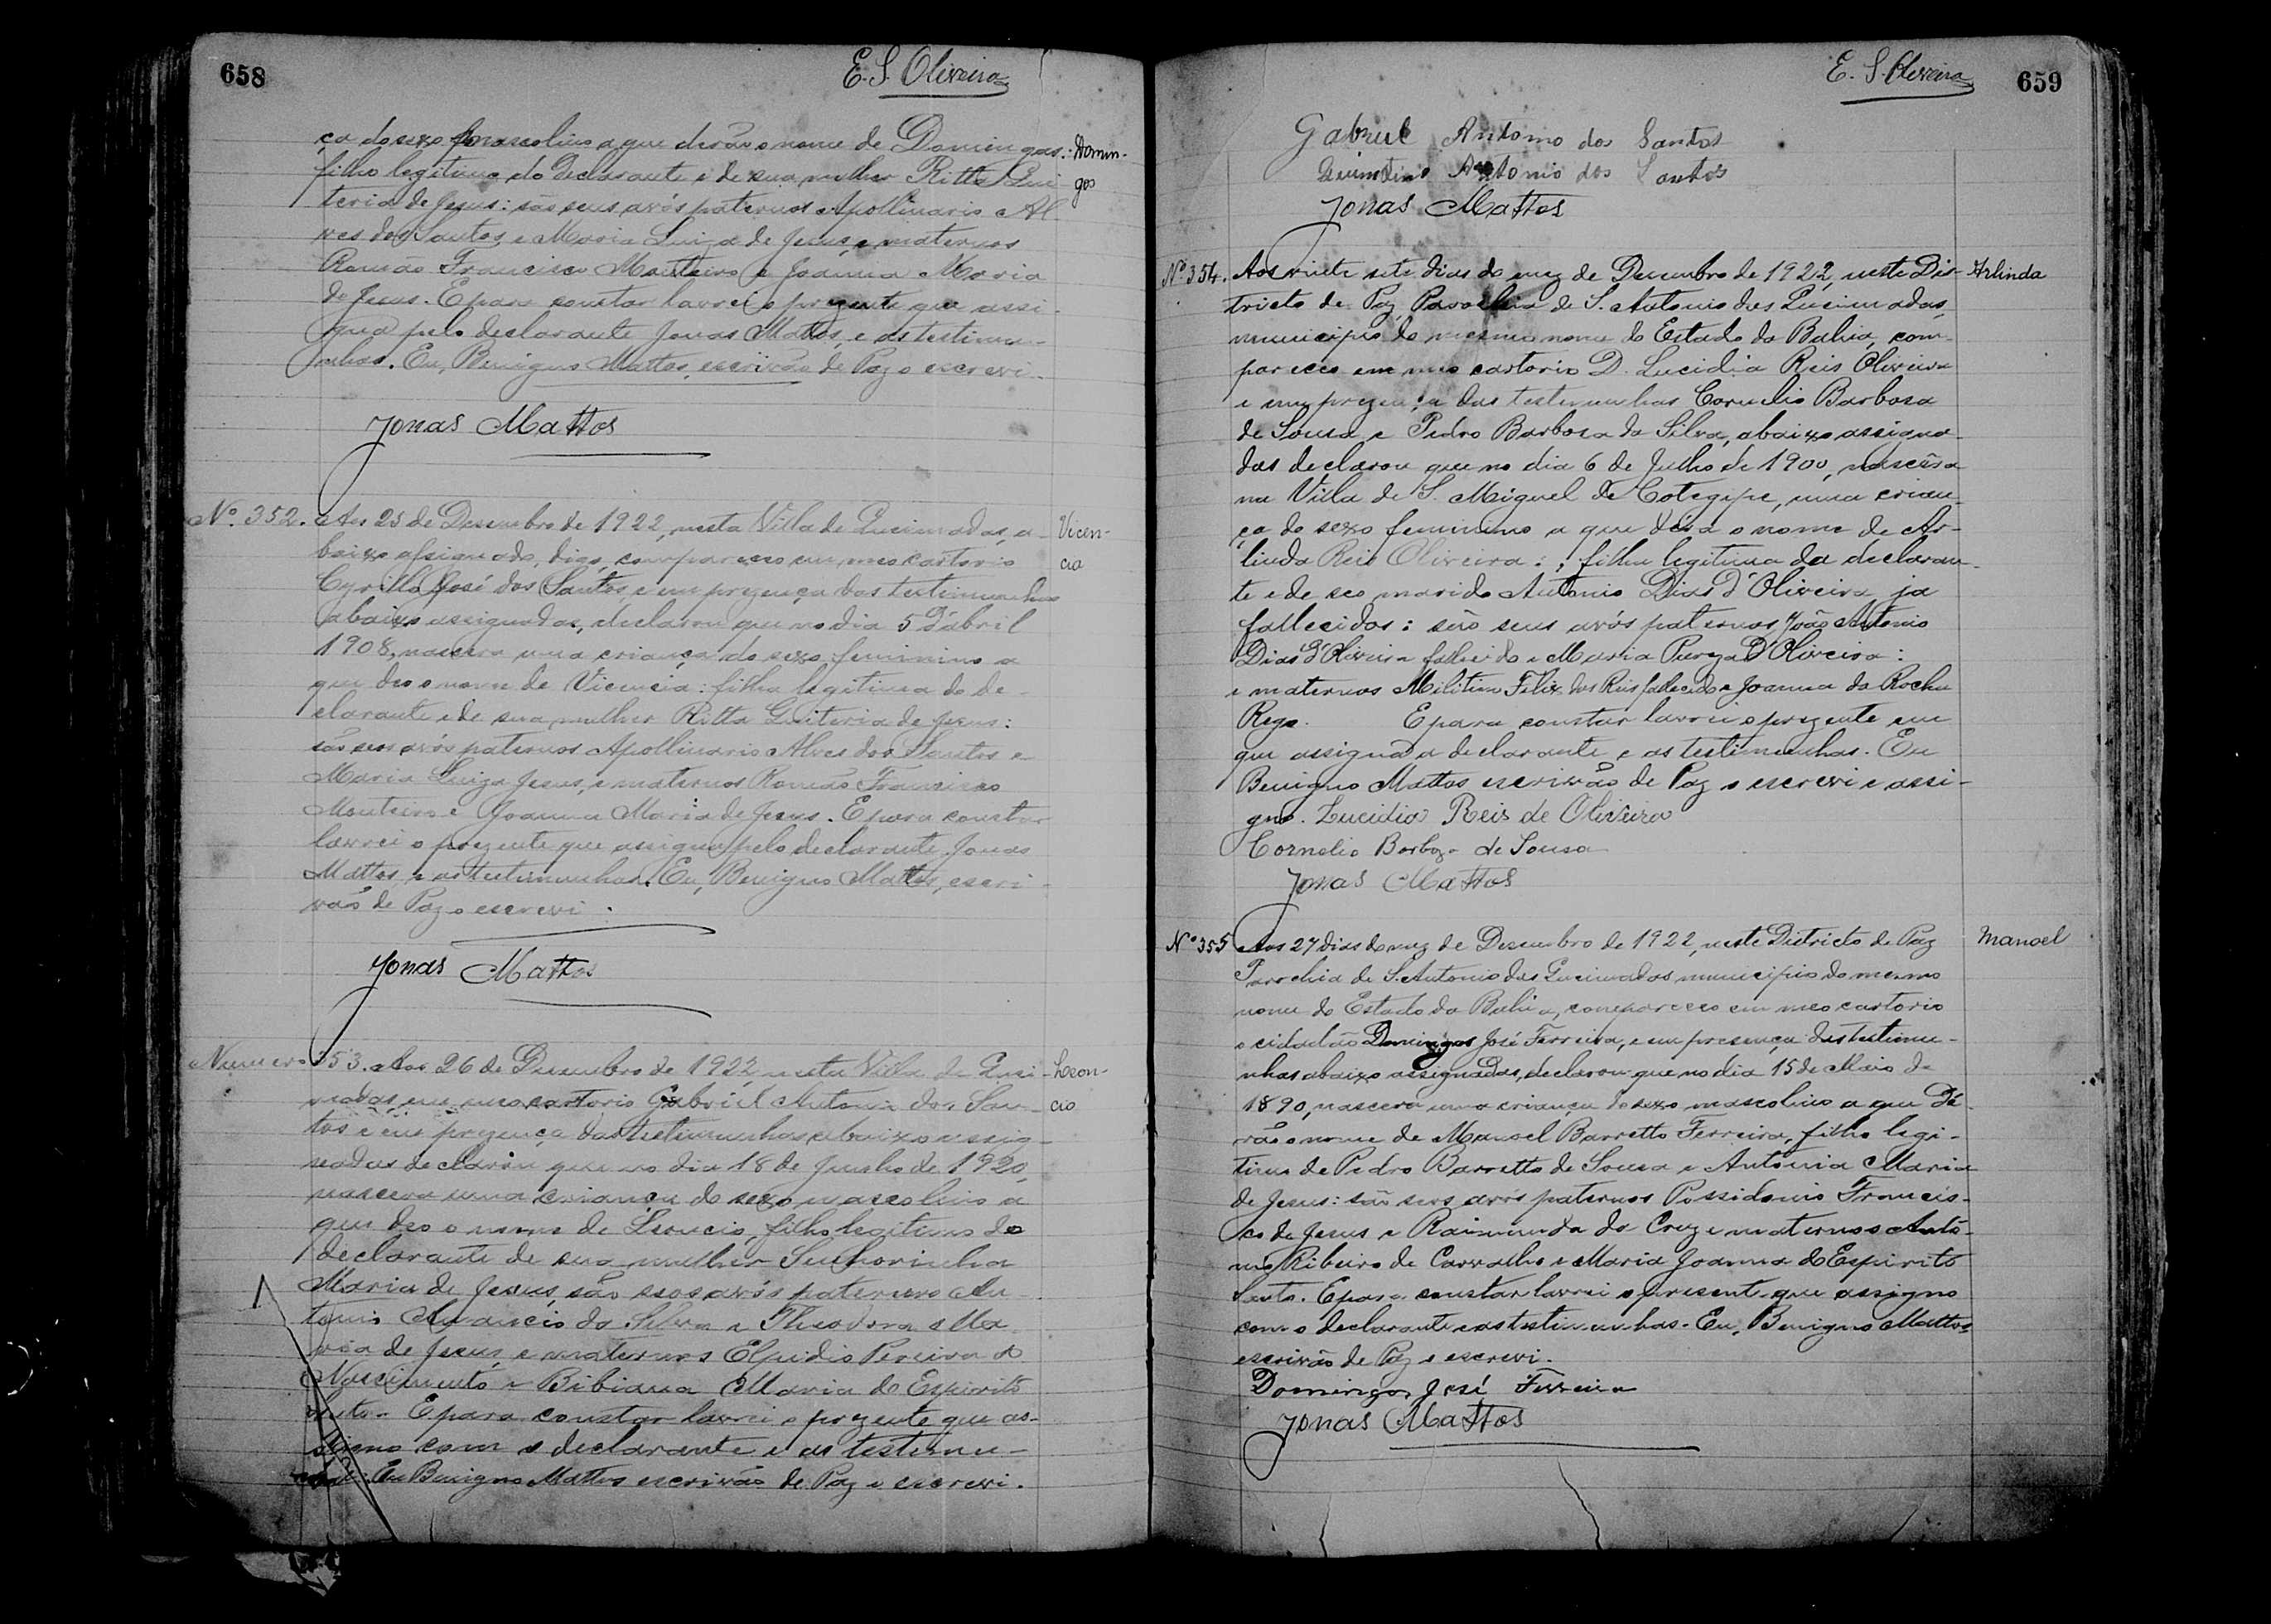 658
E. S. Oliveira
ça do sexo masculino a que derão o nome de Domingos:
Domin-
filho legitimo do declarante e de sua mulher Ritta Qui-
gos
teria de Jesus: são seus avós paternos Apollinario Al-
ves dos Santos, e Maria Luiza de Jesus, e maternos
Romão Francisco Monteiro e Joanna Maria
de Jesus. E para constar lavrei o prezente que assi-
gna pelo declarante Jonas Mattos, e as testimu-
nhas. Eu, Benigno Mattos, escrivão de Paz o escrevi.
Jonas Mattos
Nº. 352. Aos 25 de Desembro de 1922, nesta Villa de Queimadas, a-
Vicen-
baixo assignado, digo, compareceo em meo cartorio
cia
Cyrillo José dos Santos, e em prezença das testimunhas
abaixo assignadas, declarou que no dia 5 d'abril
1908, nascera uma criança do sexo feminino a
que deo o nome de Vicencia: filha legitima do de-
clarante e de sua mulher Ritta Quiteria de Jesus:
são seos avós paternos Apollinario Alves dos Santos e
Maria Luiza Jesus, e maternos Romão Francisco
Monteiro e Joanna Maria de Jesus. E para constar
lavrei o prezente que assigna pelo declarante Jonas
Mattos, e as testimunhas. Eu, Benigno Mattos, escri-
vão de Paz o escrevi.
Jonas Mattos
Numero 353. Aos 26 de Dezembro de 1922, nesta Villa de Quei-
Leon-
madas, em meo cartorio Gabriel Antonio dos San-
cio
tos e em prezença das testimunhas abaixo assig-
nadas declarou que no dia 18 de Junho de 1920,
nascera uma criança do sexo mascolino a
que deo o nome de Leoncio, filho legitimo do
declarante de sua mulher Senhorinha
Maria de Jesus, são seos avós paternos An-
tonio Amancio da Silva e Theodora Ma-
ria de Jesus, e maternos Elpidio Pereira do
Nascimento e Bibiana Maria do Espirito
Santo. E para constar lavrei o prezente que as-
signo com o declarante e as testemu-
Eu Benigno Mattos escrivão de Paz o escrevi.
E. S. Oliveira
659
Gabriel Antonio dos Santos
Quintino Antonio dos Santos
Jonas Mattos
Nº 354. Aos vinte sete dias do mez de Dezembro de 1922, neste Dis-
Arlinda
tricto de Paz, Parochia de S. Antonio das Queimadas,
municipio do mesmo nome do Estado da Bahia, com-
pareceo em meo cartorio D. Lucidia Reis Oliveira
e em prezença das testemunhas Cornelio Barbosa
de Sousa e Pedro Barbosa da Silva, abaixo assigna-
das declarou que no dia 6 de Julho de 1900, nascêra
na Villa de S. Miguel de Cotegipe, uma crian-
ça do sexo feminino a que déra o nome de Ar-
linda Reis Oliveira: ; filha legitima da declaran-
te e de seo marido Antonio Dias d'Oliveira ja
fallecidos: são seus avós paternos João Antonio
Dias d'Oliveira fallecido e Maria Pureza D'Oliveira:
e maternos Militino Felix dos Reis fallecido e Joanna da Rocha
Rego. E para constar lavrei o prezente em
que assigna a declarante e as testimunhas. Eu
Benigno Mattos escrivão de Paz o escrevi e assi-
gno. Lucidia Reis de Oliveira
Cornelio Barboza de Sousa
Jonas Mattos
Nº 355 Aos 27 dias do mez de Dezembro de 1922, neste Districto de Paz
Manoel
Parochia de S. Antonio das Queimadas municipio do mesmo
nome do Estado da Bahia, compareceo em meo cartorio
o cidadão Domingos José Ferreira, e em presença das testimu-
nhas abaixo assignadas, declarou que no dia 15 de Maio de
1890, nascera uma criança do sexo mascolino a que dé-
rão o nome de Manoel Barretto Ferreira, filho legi-
timo de Pedro Barretto de Sousa e Antonia Maria
de Jesus: são seos avós paternos Possidonio Francis-
co de Jesus e Raimunda da Cruz e maternos Anto-
nio Ribeiro de Carvalho e Maria Joanna do Espirito
Santo. E para constar lavrei o presente que assigno
com o declarante e as testimunhas. Eu, Benigno Mattos
escrivão de Paz o escrevi.
Domingos José Ferreira
Jonas Mattos